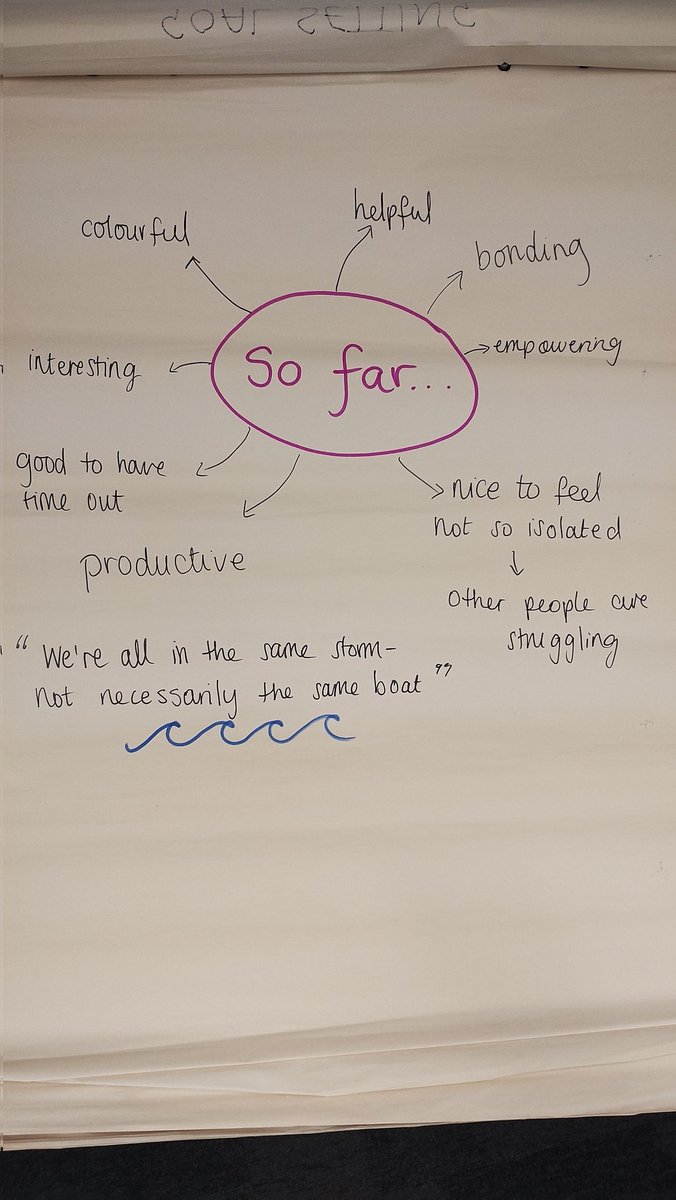 GOAL SETTING
colourful
helpful
bonding
empowering
interesting
So far...
good to have
time out
productive
nice to feel
not so isolated
Other people are
struggling
“ We're all in the same storm-
not necessarily the same boat ”